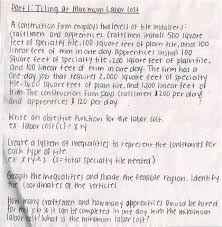 Part 1: Tiling at Minimum Labor Cost
A construction firm employs two levels of tile installers:
craftsmen and apprentices. Craftsmen install 500 square
feet of specialty tile, 100 square feet of plain tile, and 100
linear feet of trim in one day. Apprentices install 100
square feet of specialty tile, 200 square feet of plain tile,
and 100 linear feet of trim in one day. The firm has a
one day job that requires 2,000 square feet of specialty
tile, 1600 square feet of plain tile, and 1200 linear feet of
trim. The construction firm pays craftsmen $200 per day
and apprentices $120 per day.
Write an objective function for the labor cost.
ex: labor cost (c) = x + y
Create a system of inequalities to represent the constraints for
each type of tile.
ex: x + y ≥ s (s = total specialty tile needed)
Graph the inequalities and shade the feasible region. Identify
coordinates of the vertices.
How many craftsmen and how many apprentices should be hired
so that job can be completed in one day with the minimum
labor cost? What is the minimum labor cost?